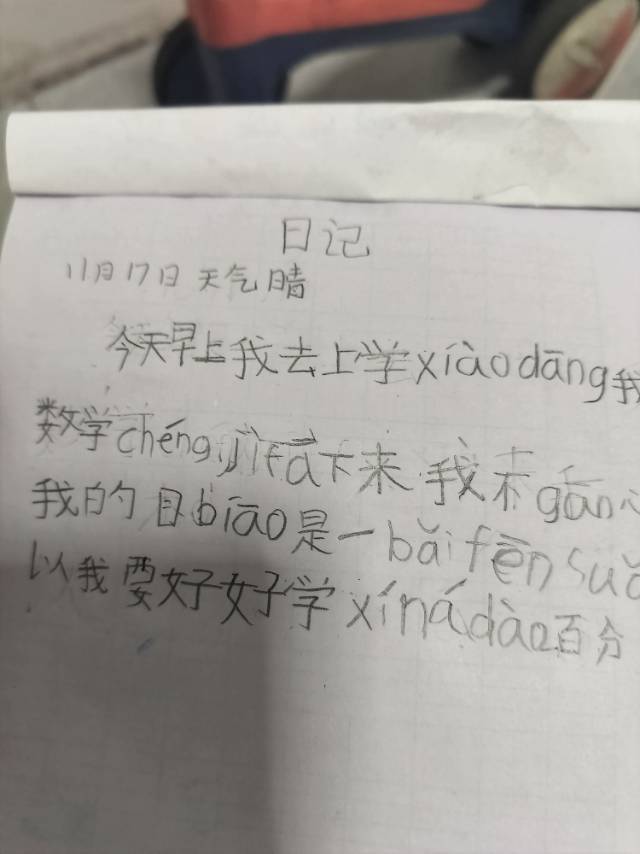 日记
11月17日 天气 晴
今天早上我去上学xiàodāng我
数学chéngjìfā下来 我不gān
我的目biāo是一bǎifēnsuǒ
以我要好好学xínádào百分